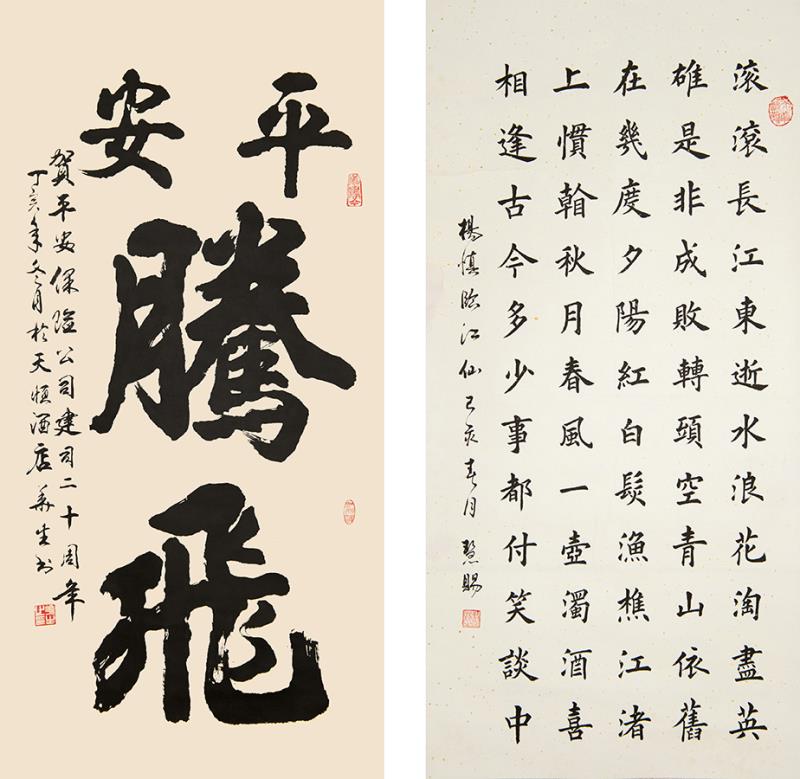 平安
騰
飛
賀平安保险公司建司二十周年
丁亥年冬月於天恒酒店
滚滚長江東逝水浪花淘盡英
雄是非成敗轉頭空青山依舊
在幾度夕陽紅白髮漁樵江渚
上慣翰秋月春風一壺濁酒喜
相逢古今多少事都付笑談中
楊慎臨江仙 己亥春月 慧賜